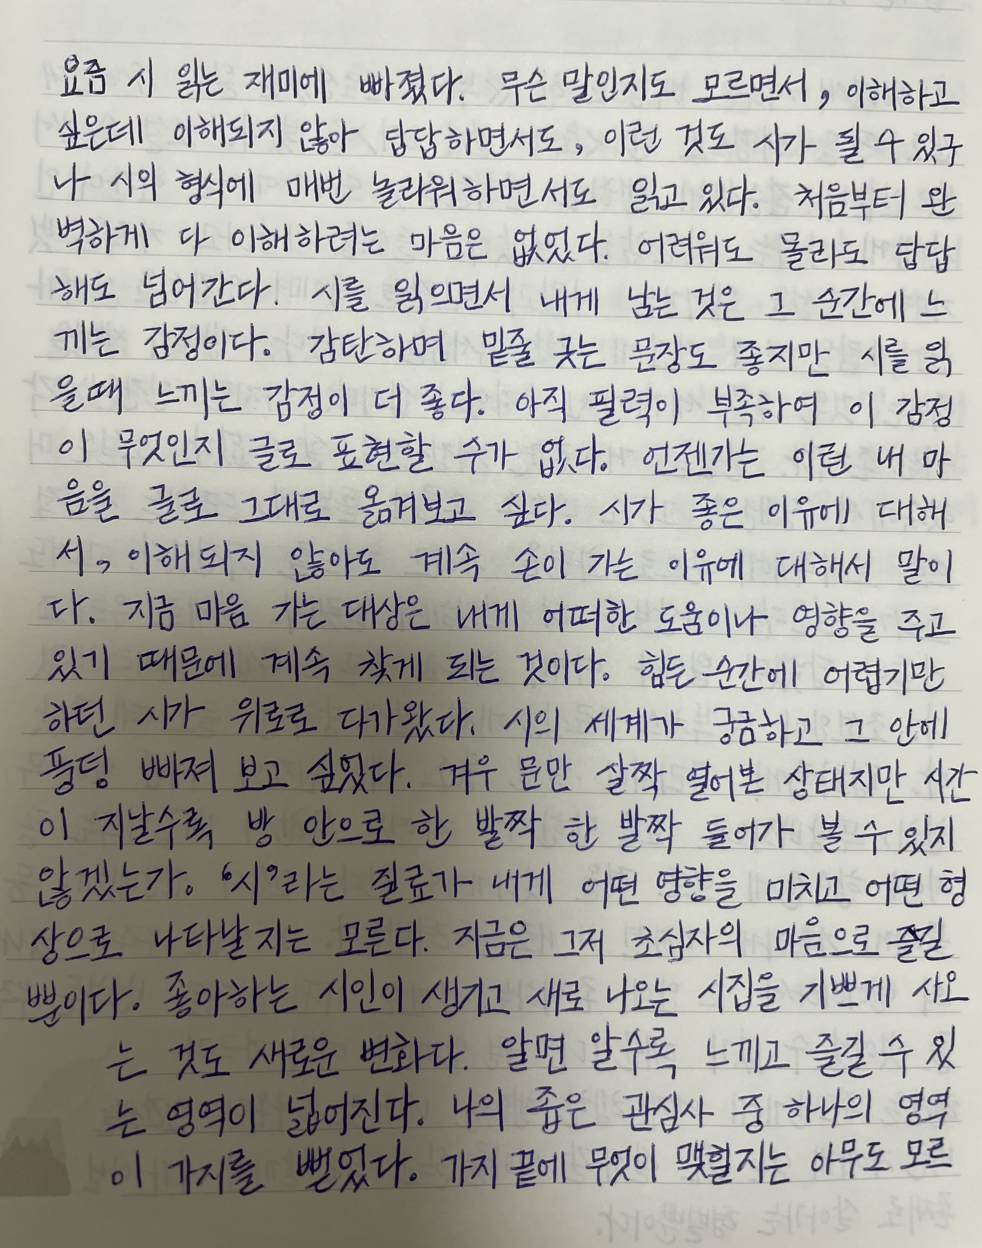 요즘 시 읽는 재미에 빠졌다. 무슨 말인지도 모르면서, 이해하고
싶은데 이해되지 않아 답답하면서도, 이런 것도 시가 될 수 있구
나 시의 형식에 매번 놀라워하면서도 읽고 있다. 처음부터 완
벽하게 다 이해하려는 마음은 없었다. 어려워도 몰라도 답답
해도 넘어간다. 시를 읽으면서 내게 남는 것은 그 순간에 느
끼는 감정이다. 감탄하며 밑줄 긋는 문장도 좋지만 시를 읽
을때 느끼는 감정이 더 좋다. 아직 필력이 부족하여 이 감정
이 무엇인지 글로 표현할 수가 없다. 언젠가는 이런 내 마
음을 글로 그대로 옮겨보고 싶다. 시가 좋은 이유에 대해
서, 이해되지 않아도 계속 손이 가는 이유에 대해서 말이
다. 지금 마음 가는 대상은 내게 어떠한 도움이나 영향을 주고
있기 때문에 계속 찾게 되는 것이다. 힘든 순간에 어렵기만
하던 시가 위로로 다가왔다. 시의 세계가 궁금하고 그 안에
풍덩 빠져 보고 싶었다. 겨우 문만 살짝 열어본 상태지만 시간
이 지날수록 방 안으로 한 발짝 한 발짝 들어가 볼 수 있지
않겠는가. '시'라는 질료가 내게 어떤 영향을 미치고 어떤 형
상으로 나타날지는 모른다. 지금은 그저 초심자의 마음으로 즐길
뿐이다. 좋아하는 시인이 생기고 새로 나오는 시집을 기쁘게 사오
는 것도 새로운 변화다. 알면 알수록 느끼고 즐길 수 있
는 영역이 넓어진다. 나의 좁은 관심사 중 하나의 영역
이 가지를 뻗었다. 가지 끝에 무엇이 맺힐지는 아무도 모르